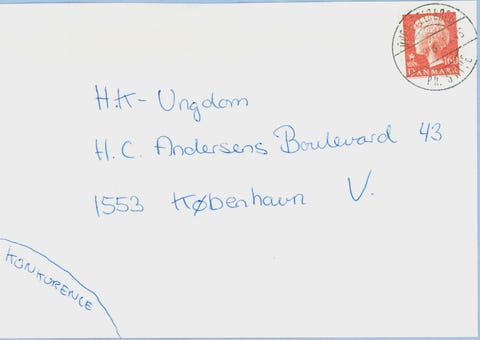 160
DANMARK
PR. STEGE
HK-Ungdom
H.C. Andersens Boulevard 43
1553 København V.
KONKURENCE